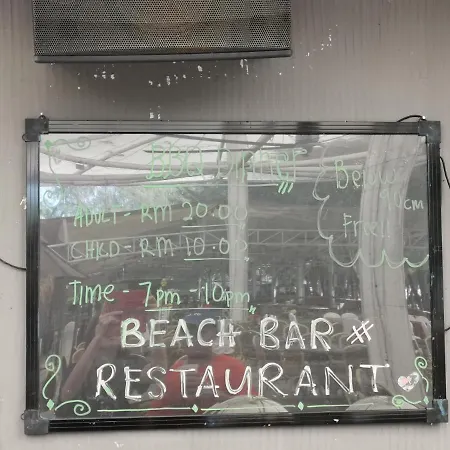 BBQ Dinner
ADULT - RM 20.00
CHILD - RM 10.00
TIME - 7pm - 10pm
Below
90cm
Free!!
BEACH BAR #
RESTAURANT